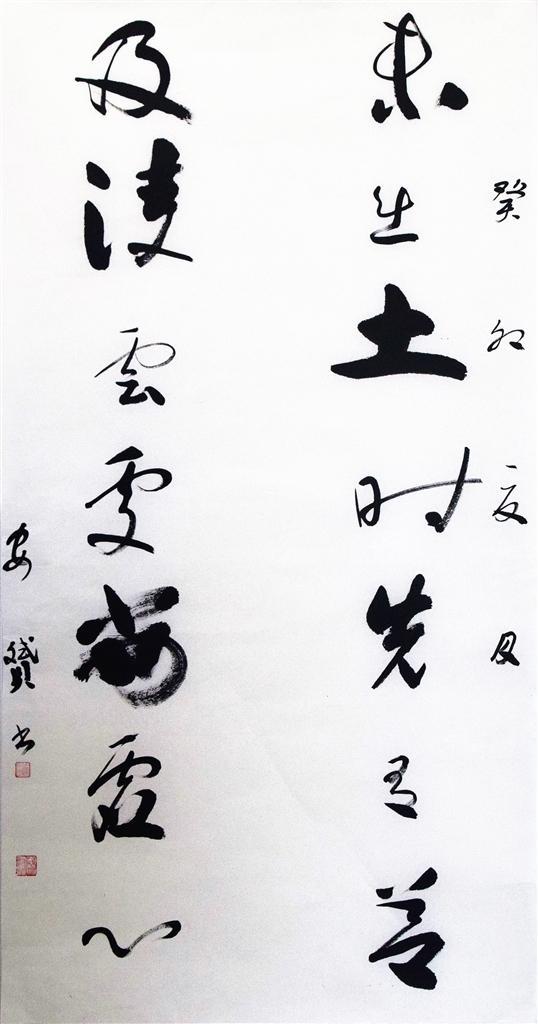 癸卯夏月
未出土时先有节
及凌雲處尚虚心
安贇书